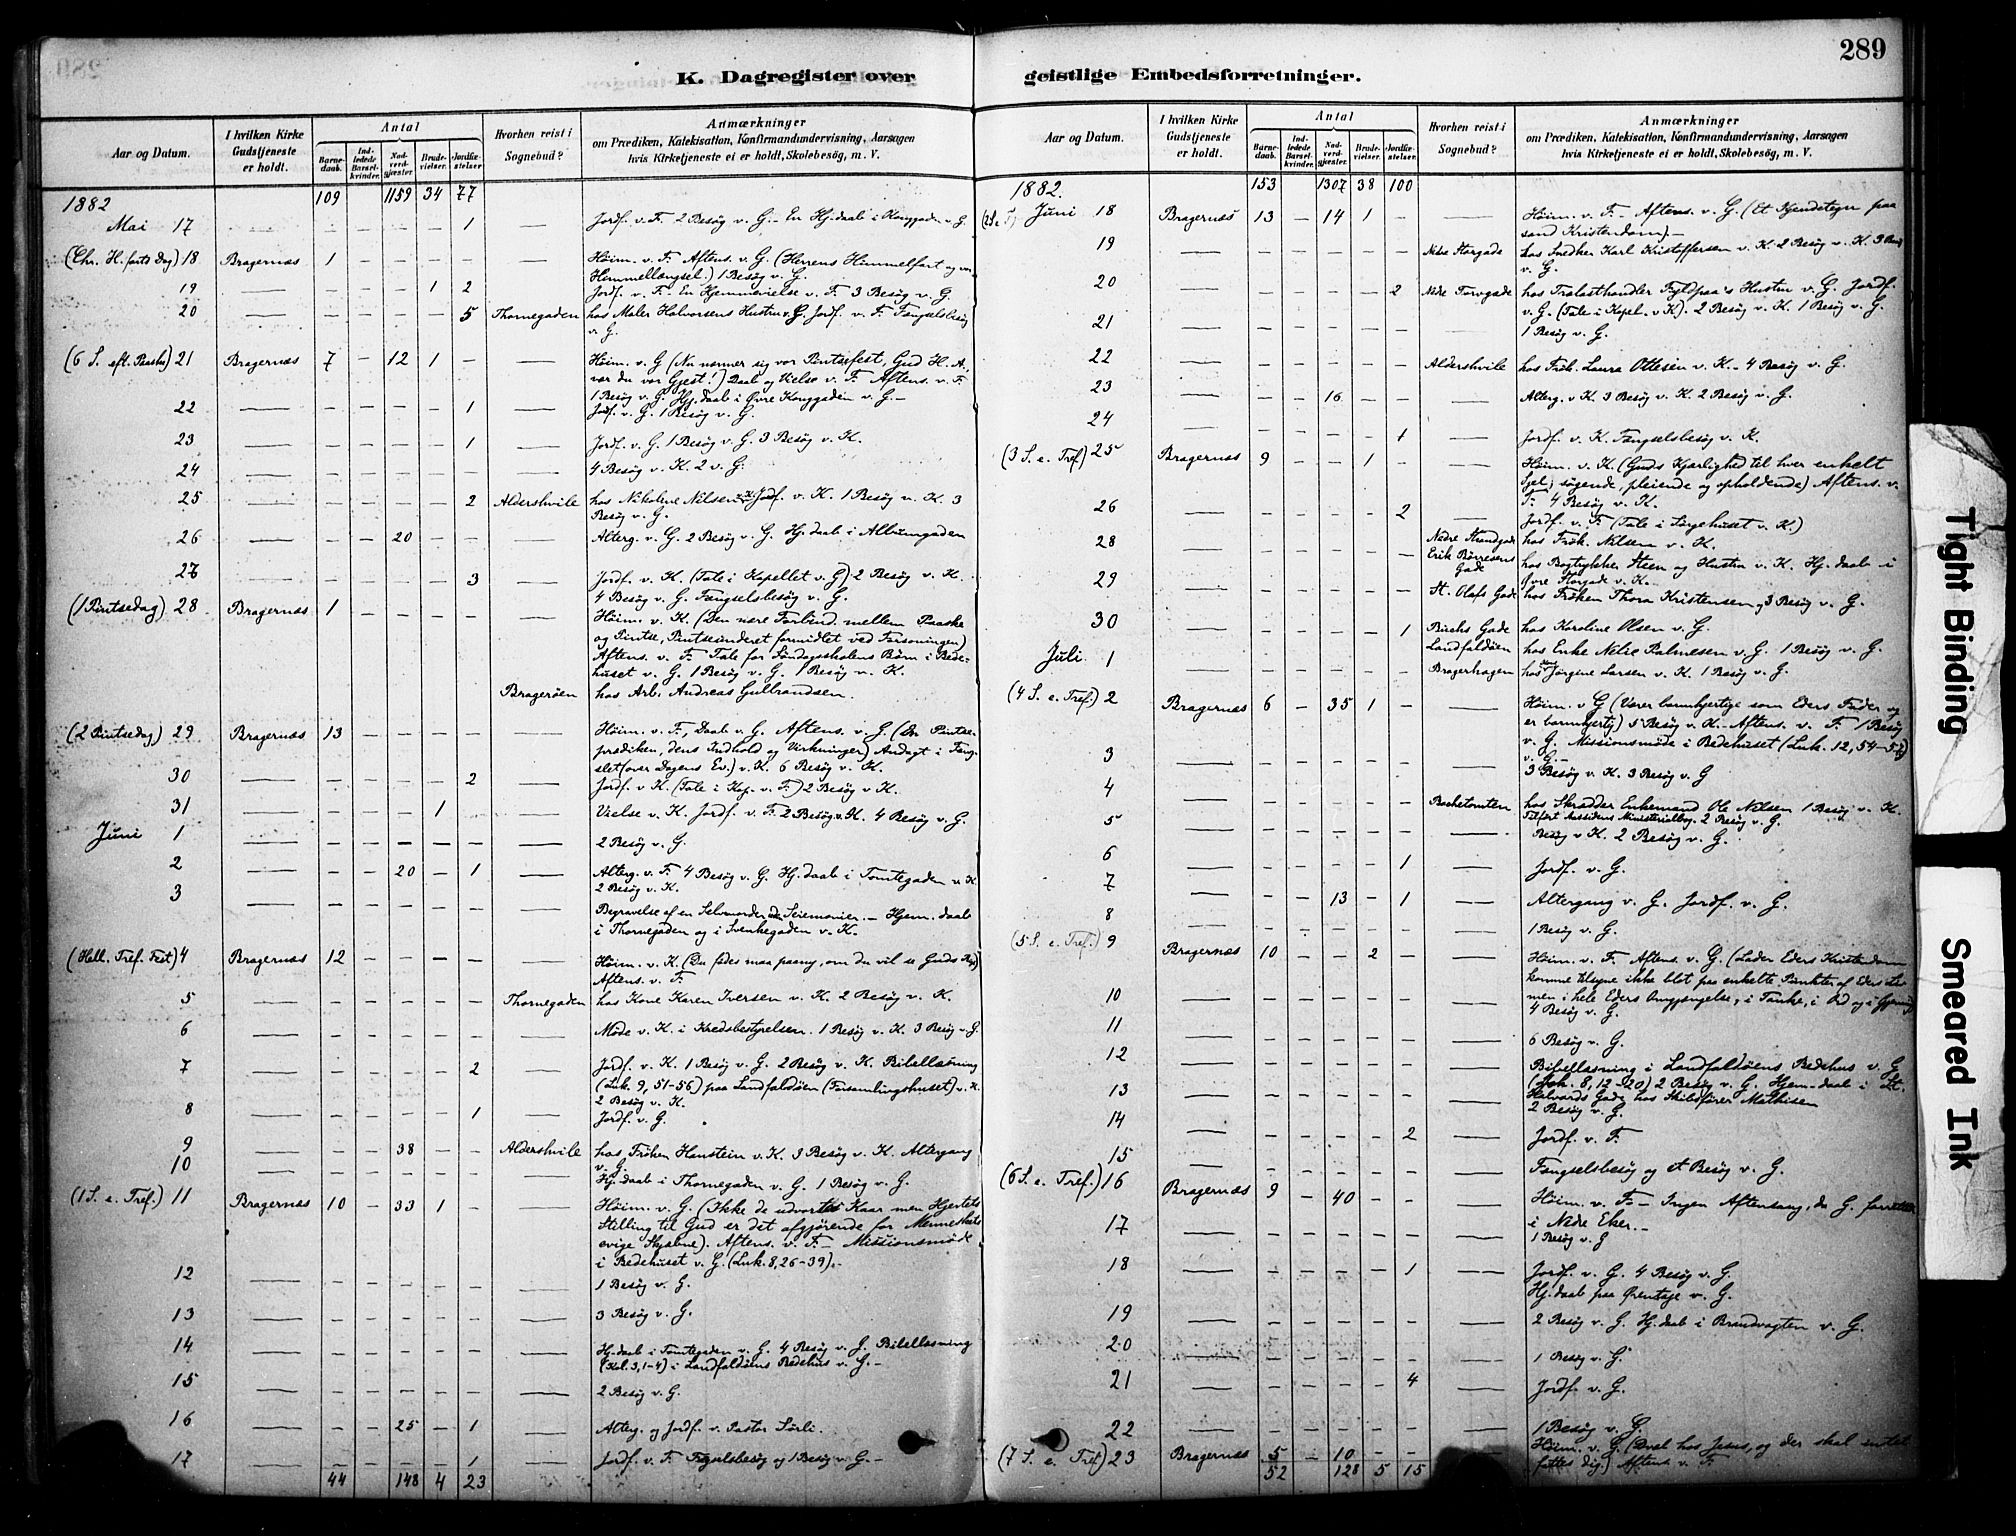 289
K. Dagregister over geistlige Embedsforretninger.
Aar og Datum.
I hvilken Kirke Gudstjeneste er holdt.
Antal
Barnedaab.
Indledede Barselkvinder.
Nadverdgjæster.
Brudevielser.
Jordfæstelser.
Hvorhen reist i Sognebud?
Anmærkninger
om Prædiken, Katekisation, Konfirmandundervisning, Aarsagen
hvis Kirketjeneste ei er holdt, Skolebesög, m. V.
1882 109 1159 34 77
Mai 17 — — — — 1 — Jordf. v. F. 2 Besøg v. G. – En Hj.daab i Konggaden v. G.
(Chr. H.farts Dag) 18 Bragernæs 1 — — — — — Høim. v. F. Aftens. v. G. (Herrens Himmelfart og vor
Hemmellængsel.) 1 Besøg v. G.
19 — — — 1 2 — Jordf. v. F. – En Hjemmevielse v. F. 3 Besøg v. G.
20 — — — — 5 Thornegaden hos Maler Halvorsens Hustru v. G. Jordf. v. F. Fængselsbesøg
v. G.
(6 S. eft. Paaske) 21 Bragernæs 7 — 12 1 — — Høim. v. G (Nu nærmer sig vor Pintsefest, Gud H. A.,
vær du vor Gjest!) Daab og Vielse v. F. Aftens. v. F.
1 Besøg v. G. Hj.daab i Øvre Konggaden v. G. –
22 — — — — 1 — Jordf. v. G. 1 Besøg v. G.
23 — — — — 1 — Jordf. v. G. 1 Besøg v. G. 3 Besøg v. K.
24 — — — — — — 4 Besøg v. K. 2 v. G.
25 — — — — 2 Aldershvile hos Nikoline Nilsen v. K. Jordf. v. K. 1 Besøg v. K. 3
Besøg v. G.
26 — — 20 — — — Alterg. v. G. 2 Besøg v. G. Hj.daab i Albumgaden
27 — — — — 3 — Jordf. v. K. (Tale i Kapellet v. G.) 2 Besøg v. K.
4 Besøg v. G. Fængselsbesøg v. G.
(1 Pintsedag) 28 Bragernæs 1 — — — — — Høim. v. K. (Den nære Forbind. mellem Paaske
og Pintse, Pintseunderet formidlet ved Forsoningen)
Aftens. v. F. Tale for Søndagsskolens Børn i Bedehuset
v. G. 1 Besøg v. G. 1 Besøg v. K.
Bragerøen hos Arb. Andreas Gulbrandsen.
(2 Pintsedag) 29 Bragernæs 13 — — — — — Høim. v. F., Daab v. G. Aftens. v. G. (En Pintseprædiken,
dens Indhold og Virkninger) Andagt i Fængslet
(over Dagens Ev.) v. K. 6 Besøg v. K.
30 — — — — 2 — Jordf. v. K. (Tale i Kap. v. F.) 2 Besøg v. K.
31 — — — 1 — — Vielse v. K. Jordf. v. F. 2 Besøg v. K. 4 Besøg v. G.
Juni 1 — — — — — — 2 Besøg v. G.
2 — — 20 — 1 — Alterg. v. F. 4 Besøg v. G. Hj.daab i Tomtegaden v. K
2 Besøg v. K.
3 — — — — — — Begravelse af en Selvmorder Seiemonier. – Hjem.daab
i Thornegaden og i Svenkegaden v. K.
(Hell. Tref. Fest) 4 Bragernæs 12 — — — — — Høim. v. K. (Du fødes maa paany, om du vil se Guds Rige)
Aftens. v. F.
5 — — — — — Thornegaden hos Kone Karen Iversen v. K. 2 Besøg v. K.
6 — — — — — — Møde v. K. i Kredsbestyrelsen. 1 Besøg v. K. 3 Besøg v. G.
7 — — — — 2 — Jordf. v. K. 1 Besøg v. G. 2 Besøg v. K. Bibellæsning
(Luk. 9, 51–56) paa Landfaldøien (Forsamlingshuset) v. K.
2 Besøg v. K.
8 — — — — 1 — Jordf. v. G.
9 — — 38 — — Aldershvile hos Frøken Hanstein v. K. 3 Besøg v. K. Altergang
v. G.
10 — — — — — — Hj.daab i Thornegaden v. G. 1 Besøg v. G.
(1 S. e. Tref.) 11 Bragernæs 10 — 33 1 — — Høim. v. G. (Ikke de udvortes Kaar men Hjertets
Stilling til Gud er det afgjørende for Menneskets
evige Skjæbne). Aftens. v. F. – Missionsmøde
i Bedehuset v. G. (Luk. 8, 26–39). –
12 — — — — — — 1 Besøg v. G.
13 — — — — — — 3 Besøg v. G.
14 — — — — — — Hj.daab i Tomtegaden v. G. 4 Besøg v. G. Bibellæsning
(Kol. 3, 1–4) i Landfaldøiens Bedehus v. G. –
15 — — — — — — 2 Besøg v. G.
16 — — 25 — 1 — Alterg. og Jordf. v. Pastor Sørli.
17 — — — — 1 — Jordf. v. F. Fængselsbesøg og 1 Besøg v. G. –
44 148 4 23
Aar og Datum.
I hvilken Kirke Gudstjeneste er holdt.
Antal
Barnedaab.
Indledede Barselkvinder.
Nadverdgjæster.
Brudevielser.
Jordfæstelser.
Hvorhen reist i Sognebud?
Anmærkninger
om Prædiken, Katekisation, Konfirmandundervisning, Aarsagen
hvis Kirketjeneste ei er holdt, Skolebesög, m. V.
1882. 153 1307 38 100
Juni 18 Bragernæs 13 — 14 1 — — Høim. v. F. – Aftens. v. G. (Et Kjendetegn paa
sand Kristendom) –
19 — — — — — Nedre Storgade hos Snedker Karl Kristoffersen v. K. 2 Besøg v. K. 3
v. G.
20 — — — — 2 Nedre Torvgade hos Trelasthandler Fyldpaa's Hustru v. G. Jordf.
v. G. (Tale i Kapel. v. K). 2 Besøg v. K. 1 Besøg v. G.
21 — — — — — — 1 Besøg v. G.
22 — — — — — Aldershvile hos Frøk. Laura Ottesen v. K. 4 Besøg v. G.
23 — — 16 — — — Alterg. v. K. 3 Besøg v. K. 2 Besøg v. G.
24 — — — — 1 — Jordf. v. K. Fængselsbesøg v. K.
(3 S. e. Tref) 25 Bragernæs 9 — — 1 — — Høim. v. K. (Guds Kjærlighed til hver enkelt
Sjel, søgende, pleiende og opholdende) Aftens. v.
F. 4 Besøg v. K.
26 — — — — 2 — Jordf. v. F. (Tale i Sørgehuset v. K.)
28 — — — — — Nedre Strandgade hos Frøk. Nilsen v. K.
29 — — — — — Erik Børresens Gade hos Bogtrykker Steen og Hustru v. K. Hj.daab i
Øvre Storgade v. K. –
St. Olafs Gade hos Frøken Thora Kristensen og 3 Besøg v. G.
30 — — — — 1 Buchs Gade hos Karoline Olsen v. G.
Juli 1 Landfaldøien hos Enke Nelie Palmesen v. G. 1 Besøg v. G.
Bragerhagen hos Jørgine Larsen v. K. 1 Besøg v. G.
(4 S. e. Tref.) 2 Bragernæs 6 — 35 1 — — Høim. v. G (Værer barmhjertige som Eders Fader og
er barmhjertig) 5 Besøg v. K. – Aftens. v. F. 1 Besøg
v. G. Missionsmøde i Bedehuset (Luk. 12, 54–57)
v. G. –
3 — — — — — — 3 Besøg v. K. 3 Besøg v. G
4 — — — — — Bachetomten hos Skrædder Enkemand Ole Nilsen 1 Besøg v. K.
Ministerialbog. 2 Besøg v. G.
5 — — — — — — Besøg v. K. 2 Besøg v. G.
6 — — — — 1 — Jordf. v. G.
7 — — 13 — 1 — Altergang v. G. Jordf. v. G.
8 — — — — — — 1 Besøg v. G.
(5 S. e. Tref.) 9 Bragernæs 10 — — 2 — — Høim. v. F. Aftens. v. G. (Lader Eders Kristendom
komme tilsyne ikke blot paa enkelte Punkter af Eders Liv
men i hele Eders Omgjængelse, i Tanke, i Ord og i Gjerning)
10 — — — — — — 4 Besøg v. G.
11 — — — — — — 6 Besøg v. G.
12 — — — — — — Bibellæsning i Landfaldøiens Bedehus v. G
(Joh. 8, 12–20) 2 Besøg v. G. Hjem.daab i St.
Halvards Gade hos Skibsfører Mathisen
13 — — — — — — 2 Besøg v. G.
14 — — — — 2 — Jordf. v. F.
15 — — — — — — Fængselsbesøg og et Besøg v. G.
(6 S. e. Tref.) 16 Bragernæs 9 — 40 — — — Høim. v. F. – Ingen Aftensang, da G. forrettede
i Nedre Eker. –
17 — — — — — — 1 Besøg v. G
18 — — — — 1 — Jordf. v. G. 4 Besøg v. G.
Hj.daab paa Ørentaje v. G.
19 — — — — — — 2 Besøg v. G. Hj.daab i Brandvagten v. G.
20 — — — — — — 1 Besøg v. G.
21 — — — — 4 — Jordf. v. G.
22 — — — — — — 1 Besøg v. G.
(7 S. e. Tref) 23 Bragernæs 5 — 10 — — — Høim. v. G. (Dvel hos Jesus, og der skal intet
fattes dig.) Aftens. v. F.
52 128 5 15
Tight Binding
Smeared Ink